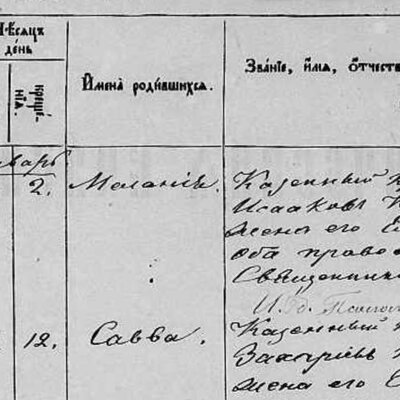 Мѣсяцъ
день
креще-
нія.
Имена родившихся.
Званіе, имя, отчеств
нварь
2.
Меланія.
Казенный
Исааковъ
жена его
оба право
Священник
12.
Савва.
Казенный
Захаріевъ
жена его